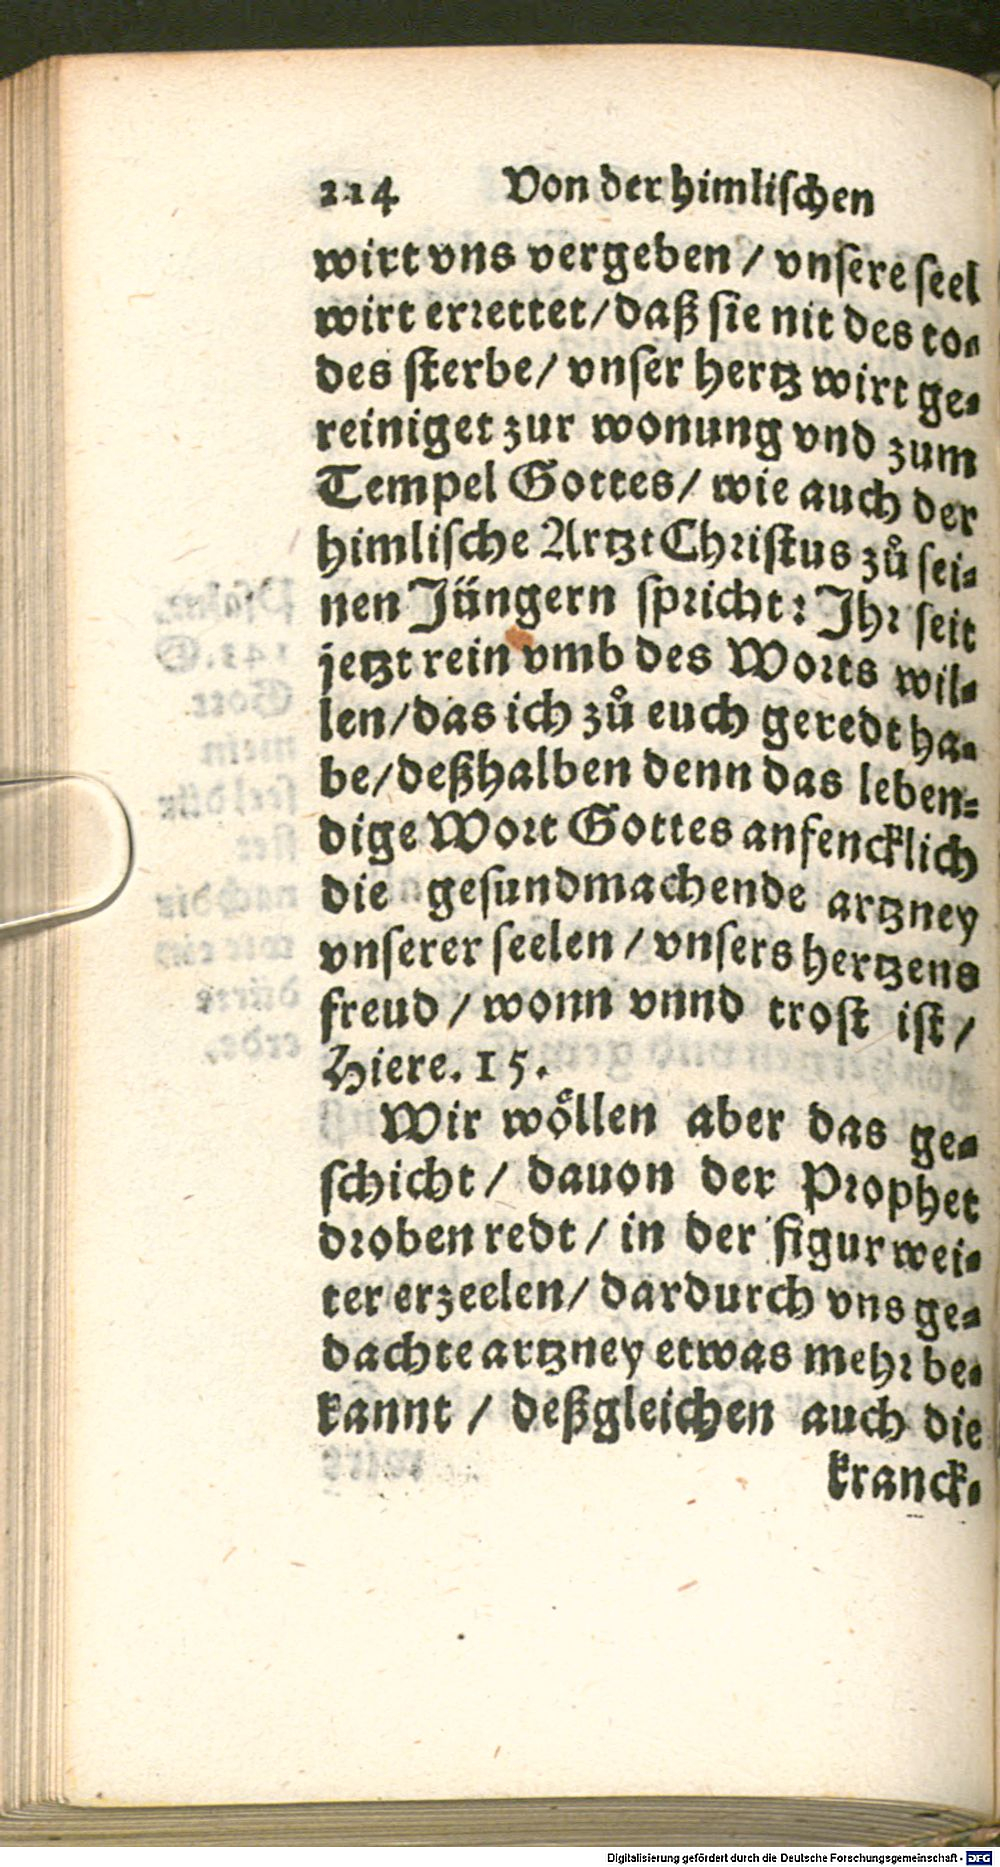 214 Von der himlischen
wirt vns vergeben / vnsere seel
wirt errettet/daß sie nit des to-
des sterbe/ vnser hertz wirt ge-
reiniget zur wonung vnd zum
Tempel Gottes/ wie auch der
himlische Artzt Christus zů sei-
nen Jüngern spricht: Jhr seit
jetzt rein vmb des Worts wil-
len/das ich zů euch geredt ha-
be/deßhalben denn das leben-
dige Wort Gottes anfencklich
die gesundmachende artzney
vnserer seelen / vnsers hertzens
freud / wonn vnnd trost ist /
Hiere. 15.
Wir wöllen aber das ge-
schicht/ dauon der Prophet
droben redt / in der figur wei-
ter erzeelen/ dardurch vns ge-
dachte artzney etwas mehr be-
kannt / deßgleichen auch die
kranck-
Digitalisierung gefördert durch die Deutsche Forschungsgemeinschaft - DFG